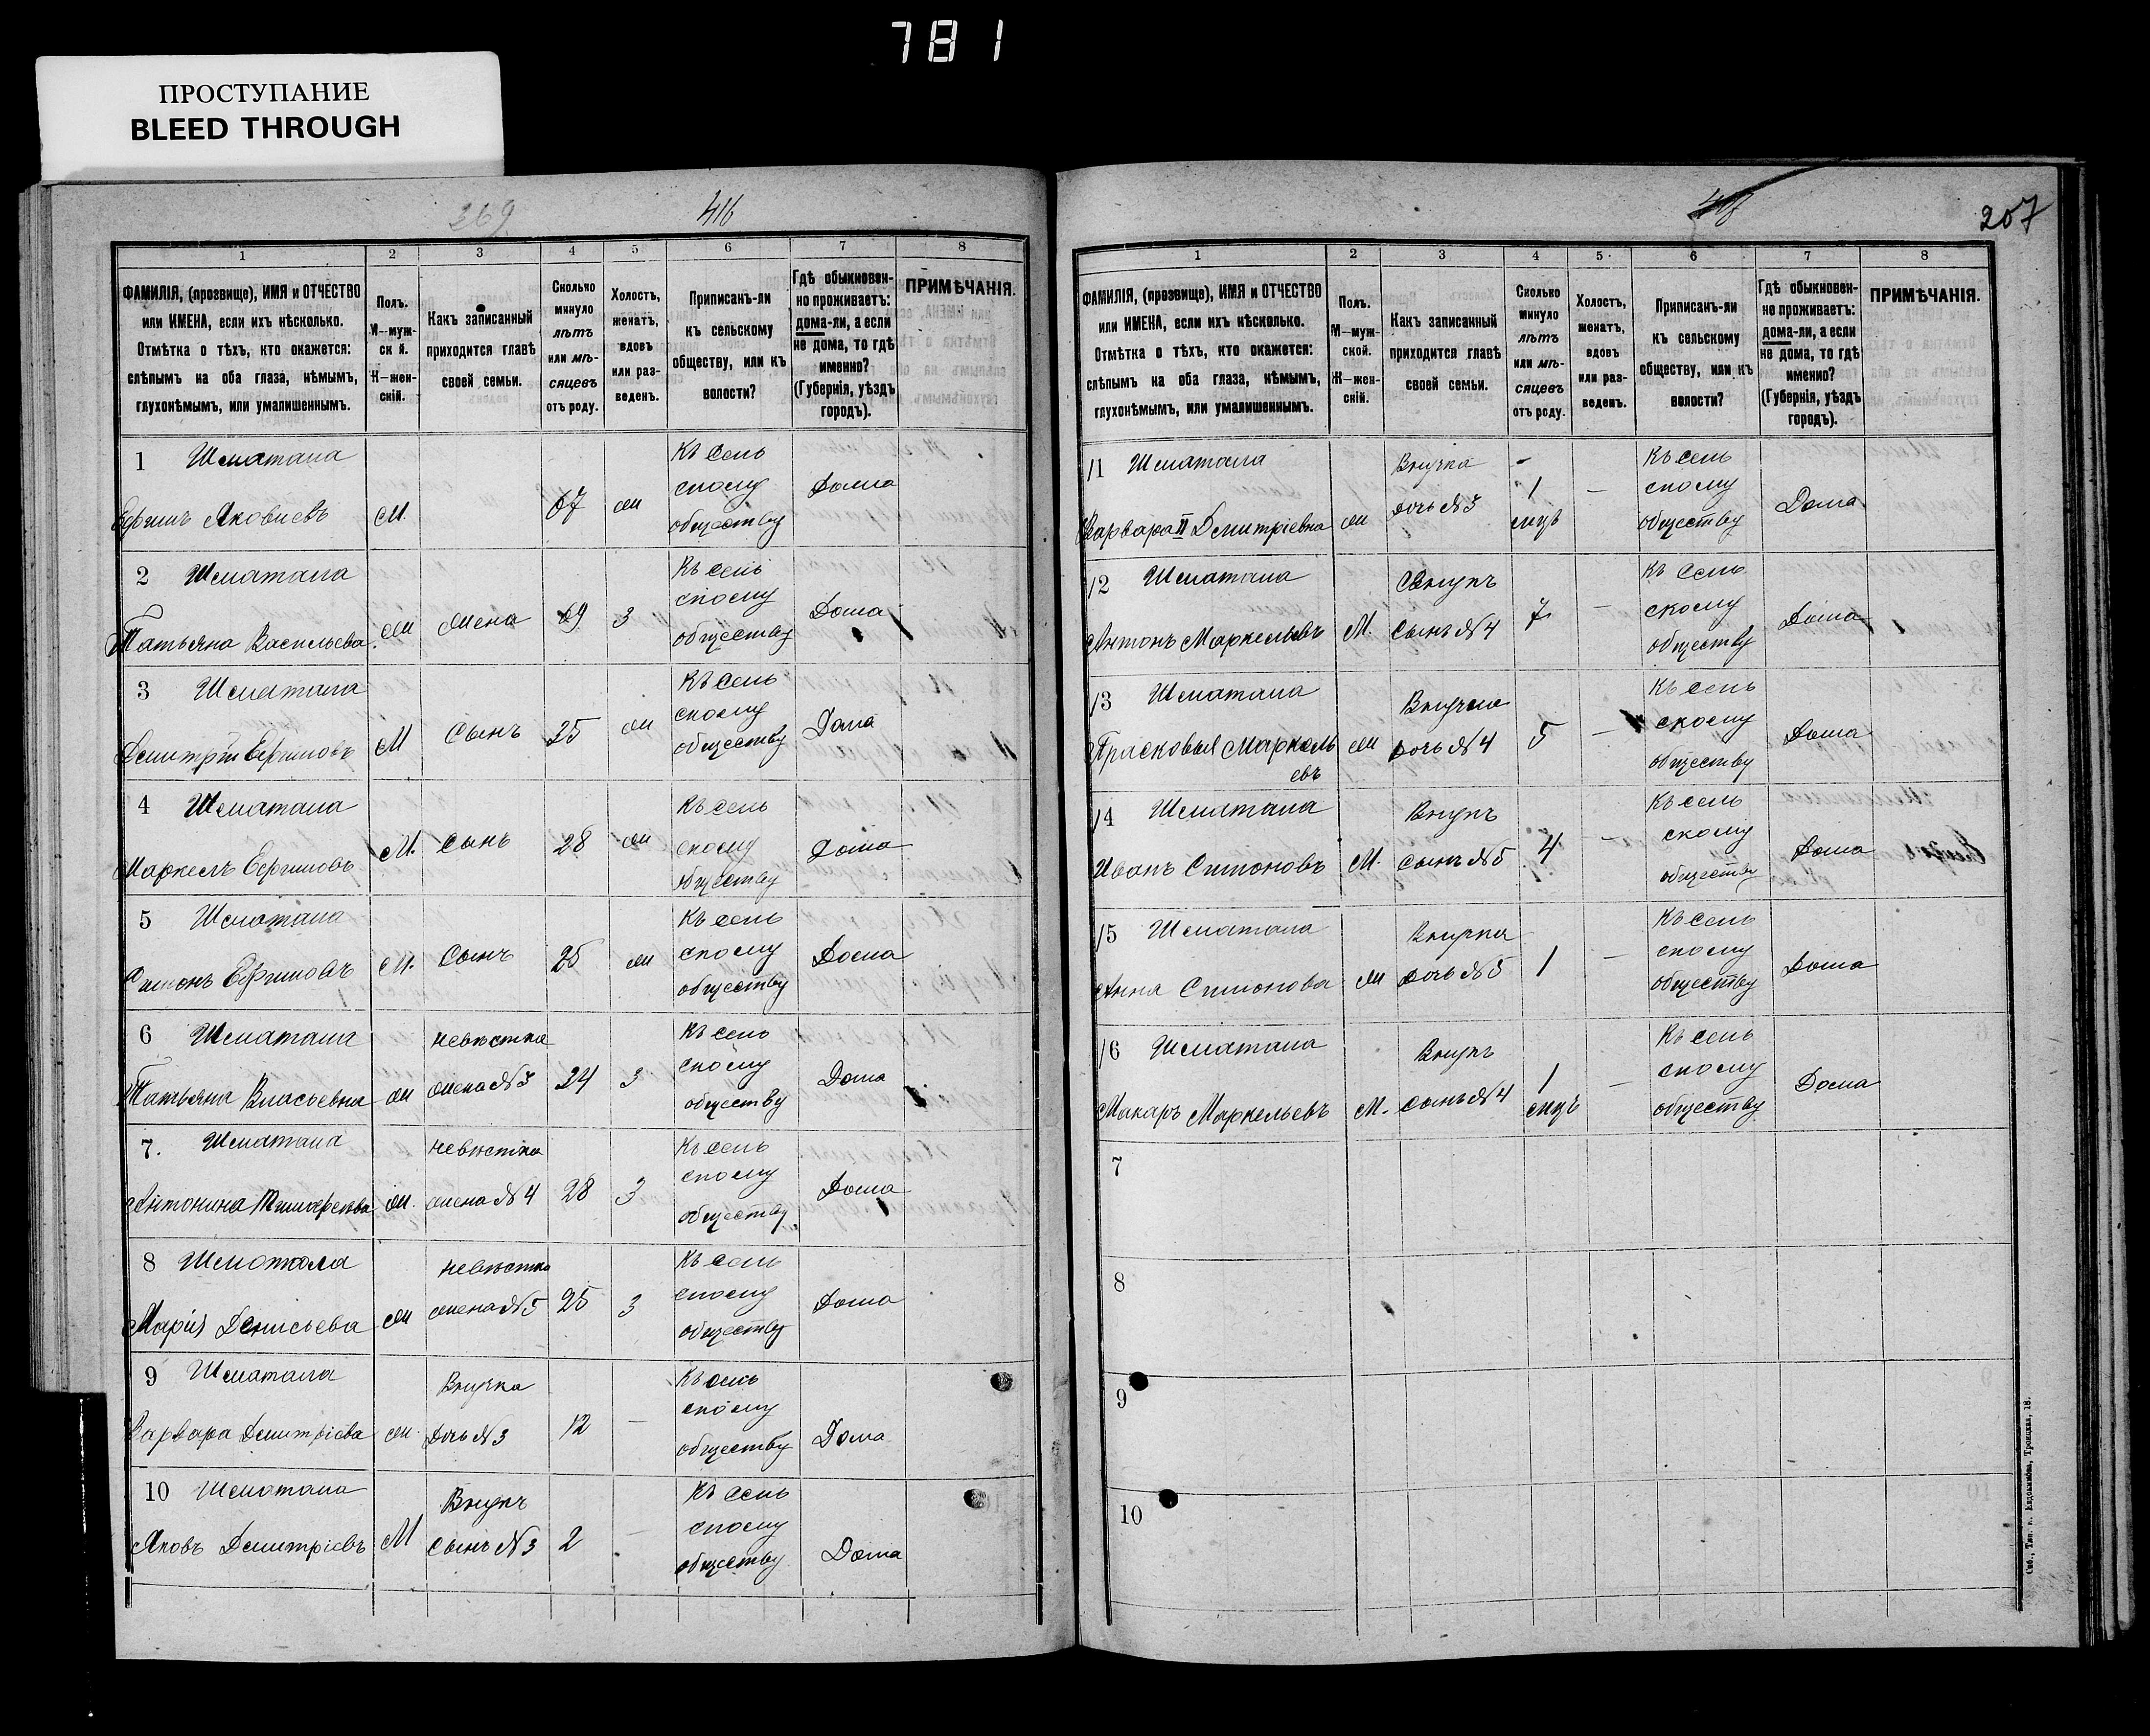 781
ПРОСТУПАНИЕ
BLEED THROUGH
269
416
1 2 3 4 5 6 7 8
ФАМИЛІЯ, (прозвище), ИМЯ и ОТЧЕСТВО или ИМЕНА, если ихъ нѣсколько. Отмѣтка о тѣхъ, кто окажется: слѣпымъ на оба глаза, нѣмымъ, глухонѣмымъ, или умалишеннымъ.
Полъ. М—мужской. Ж—женскій.
Какъ записанный приходится главѣ своей семьи.
Сколько минуло лѣтъ или мѣсяцевъ отъ роду.
Холостъ, женатъ, вдовъ или разведенъ.
Приписанъ-ли къ сельскому обществу, или къ волости?
Гдѣ обыкновенно проживаетъ: дома-ли, а если не дома, то гдѣ именно? (Губернія, уѣздъ городъ).
ПРИМѢЧАНІЯ.
1 Шматала
Ефимъ Яковлевъ М. 67 ж Къ сельскому обществу Дома
2 Шматала
Татьяна Васильева. ж жена 69 З Къ сельскому обществу Дома
3 Шматала
Дмитрій Ефимовъ М Сынъ 25 ж Къ сельскому обществу Дома
4 Шматала
Маркелъ Ефимовъ М. Сынъ 28 ж Къ сельскому обществу Дома
5 Шматала
Симонъ Ефимовъ М. Сынъ 25 ж Къ сельскому обществу Дома
6 Шматала
Татьяна Власьевна ж невѣстка жена №3 24 З Къ сельскому обществу Дома
7. Шматала
Антонина Тимофеева ж. невѣстка жена №4 28 З Къ сельскому обществу Дома
8 Шматала
Марія Денисьева ж невѣстка жена №5 25 З Къ сельскому обществу Дома
9 Шматала
Варвара Дмитріева ж. Внучка дочь №3 12 — Къ сельскому обществу Дома
10 Шматала
Яковъ Дмитріевъ М Внукъ Сынъ №3 2 — Къ сельскому обществу Дома
207
1 2 3 4 5 6 7 8
ФАМИЛІЯ, (прозвище), ИМЯ и ОТЧЕСТВО или ИМЕНА, если ихъ нѣсколько. Отмѣтка о тѣхъ, кто окажется: слѣпымъ на оба глаза, нѣмымъ, глухонѣмымъ, или умалишеннымъ.
Полъ. М—мужской. Ж—женскій.
Какъ записанный приходится главѣ своей семьи.
Сколько минуло лѣтъ или мѣсяцевъ отъ роду.
Холостъ, женатъ, вдовъ или разведенъ.
Приписанъ-ли къ сельскому обществу, или къ волости?
Гдѣ обыкновенно проживаетъ: дома-ли, а если не дома, то гдѣ именно? (Губернія, уѣздъ городъ).
ПРИМѢЧАНІЯ.
11 Шматала
Варвара II Дмитріевна ж Внучка дочь №3 1 мцъ — Къ сельскому обществу Дома
12 Шматала
Антонъ Маркельевъ М. Внукъ Сынъ №4 7 — Къ сельскому обществу Дома
13 Шматала
Прасковья Маркельевъ ж Внучка дочь №4 5 — Къ сельскому обществу Дома
14 Шматала
Иванъ Симоновъ М. Внукъ сынъ №5 4 — Къ сельскому обществу Дома
15 Шматала
Анна Симонова ж Внучка дочь №5 1 — Къ сельскому обществу Дома
16 Шматала
Макаръ Маркельевъ М. Внукъ сынъ №4 1 мцъ — Къ сельскому обществу Дома
7
8
9
10
Спб., Тип. Евдокимова, Троицкая, 18.